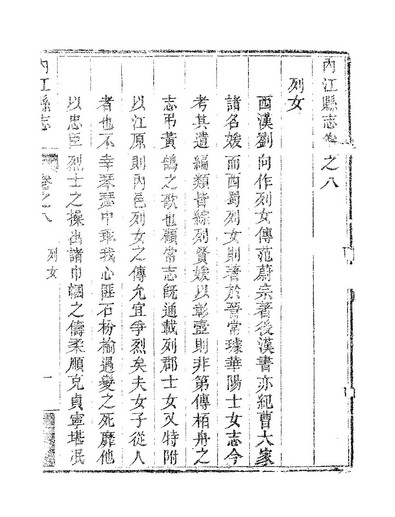 內江縣志卷之八
列女
西漢劉向作列女傳范蔚宗著後漢書亦紀曹大家
諸名媛而西蜀列女則著於晉常璩華陽士女志今
考其遺編類皆綜列賢媛以彰壼則非第傳栢舟之
志弔黃鵠之歌也顧當志旣通載列郡士女又特附
以江原則內邑列女之傳允宜爭烈矣夫女子從人
者也不幸琴瑟中乖我心匪石枌榆遇變之死靡他
以忠臣烈士之操出諸巾幗之儔柔順克貞寧堪泯
內江縣志
卷之八
列女
一